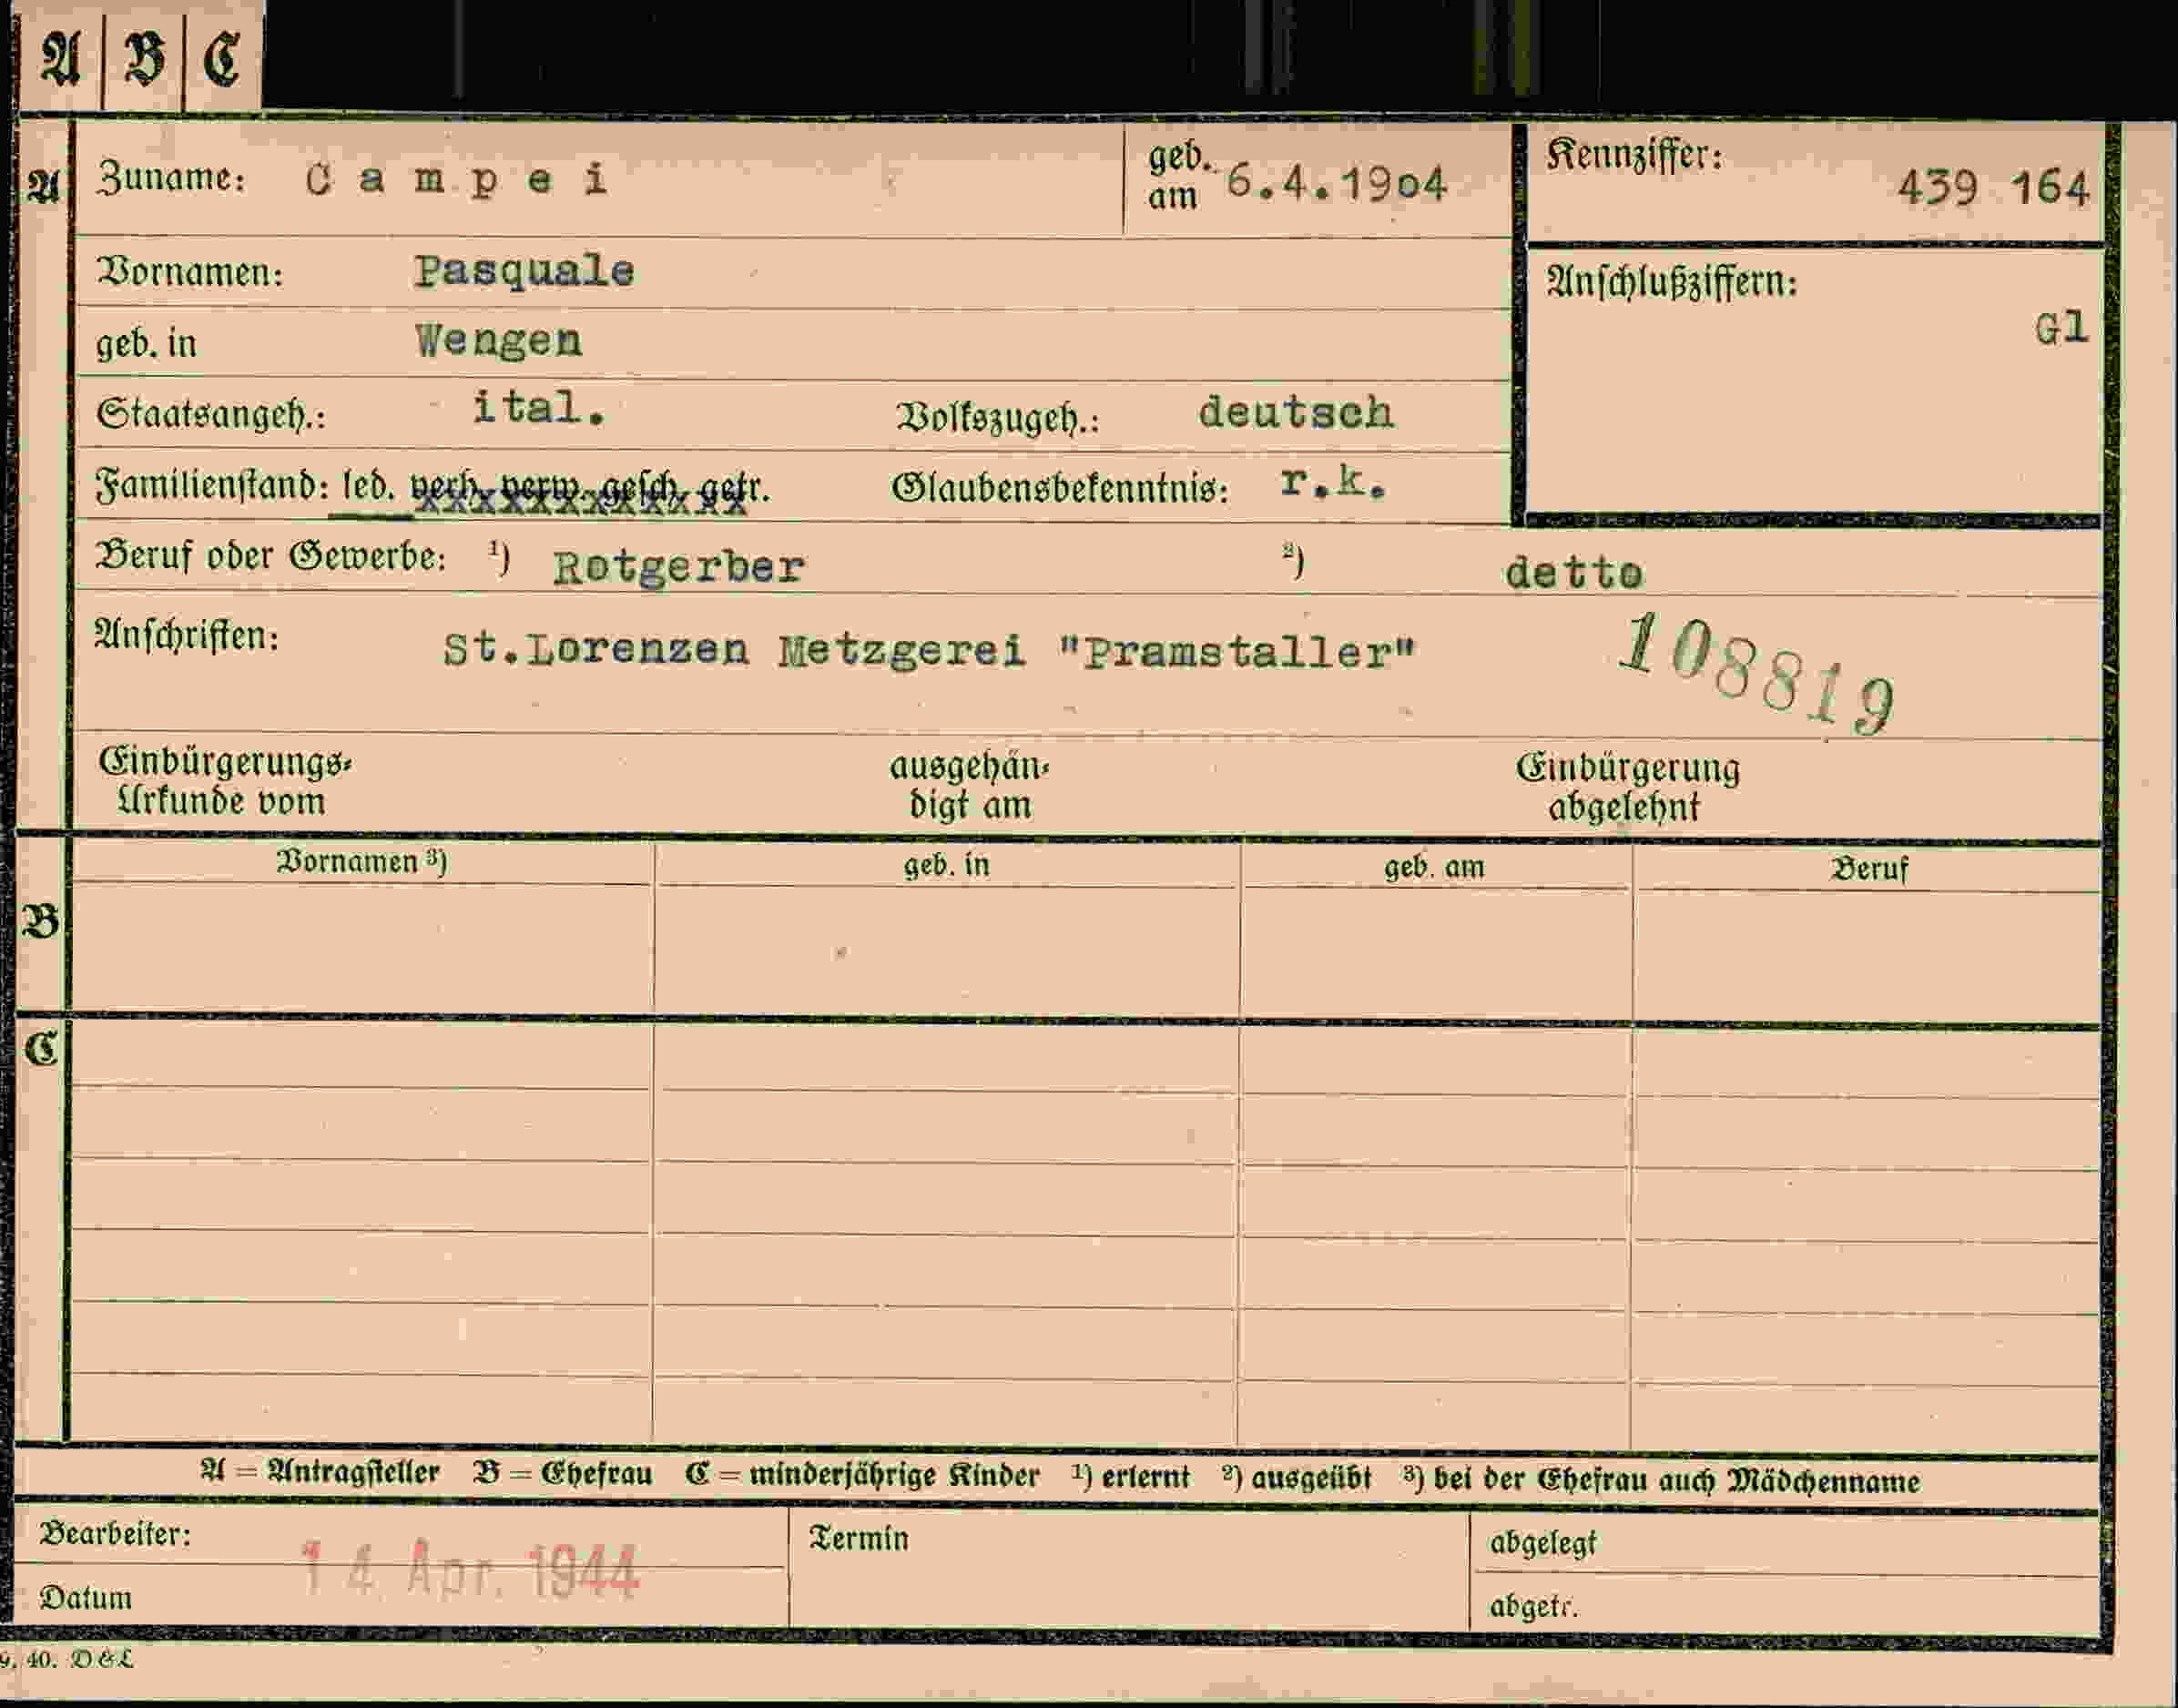 A B C
A Zuname: Campei geb. am 6.4.1904 Kennziffer: 439 164
Vornamen: Pasquale Anschlußziffern:
Gl
geb. in Wengen
Staatsangeh.: ital. Volkszugeh.: deutsch
Familienstand: led. verh. verw. gesch. getr. Glaubensbekenntnis: r.k.
Beruf oder Gewerbe: ¹) Rotgerber ²) detto
Anschriften: St.Lorenzen Metzgerei "Pramstaller" 108819
Einbürgerungs-Urkunde vom ausgehändigt am Einbürgerung abgelehnt
Vornamen ³) geb. in geb. am Beruf
B
C
A = Antragsteller B = Ehefrau C = minderjährige Kinder ¹) erlernt ²) ausgeübt ³) bei der Ehefrau auch Mädchenname
Bearbeiter: Termin abgelegt
14 Apr. 1944
Datum abgetr.
9. 40. D&L